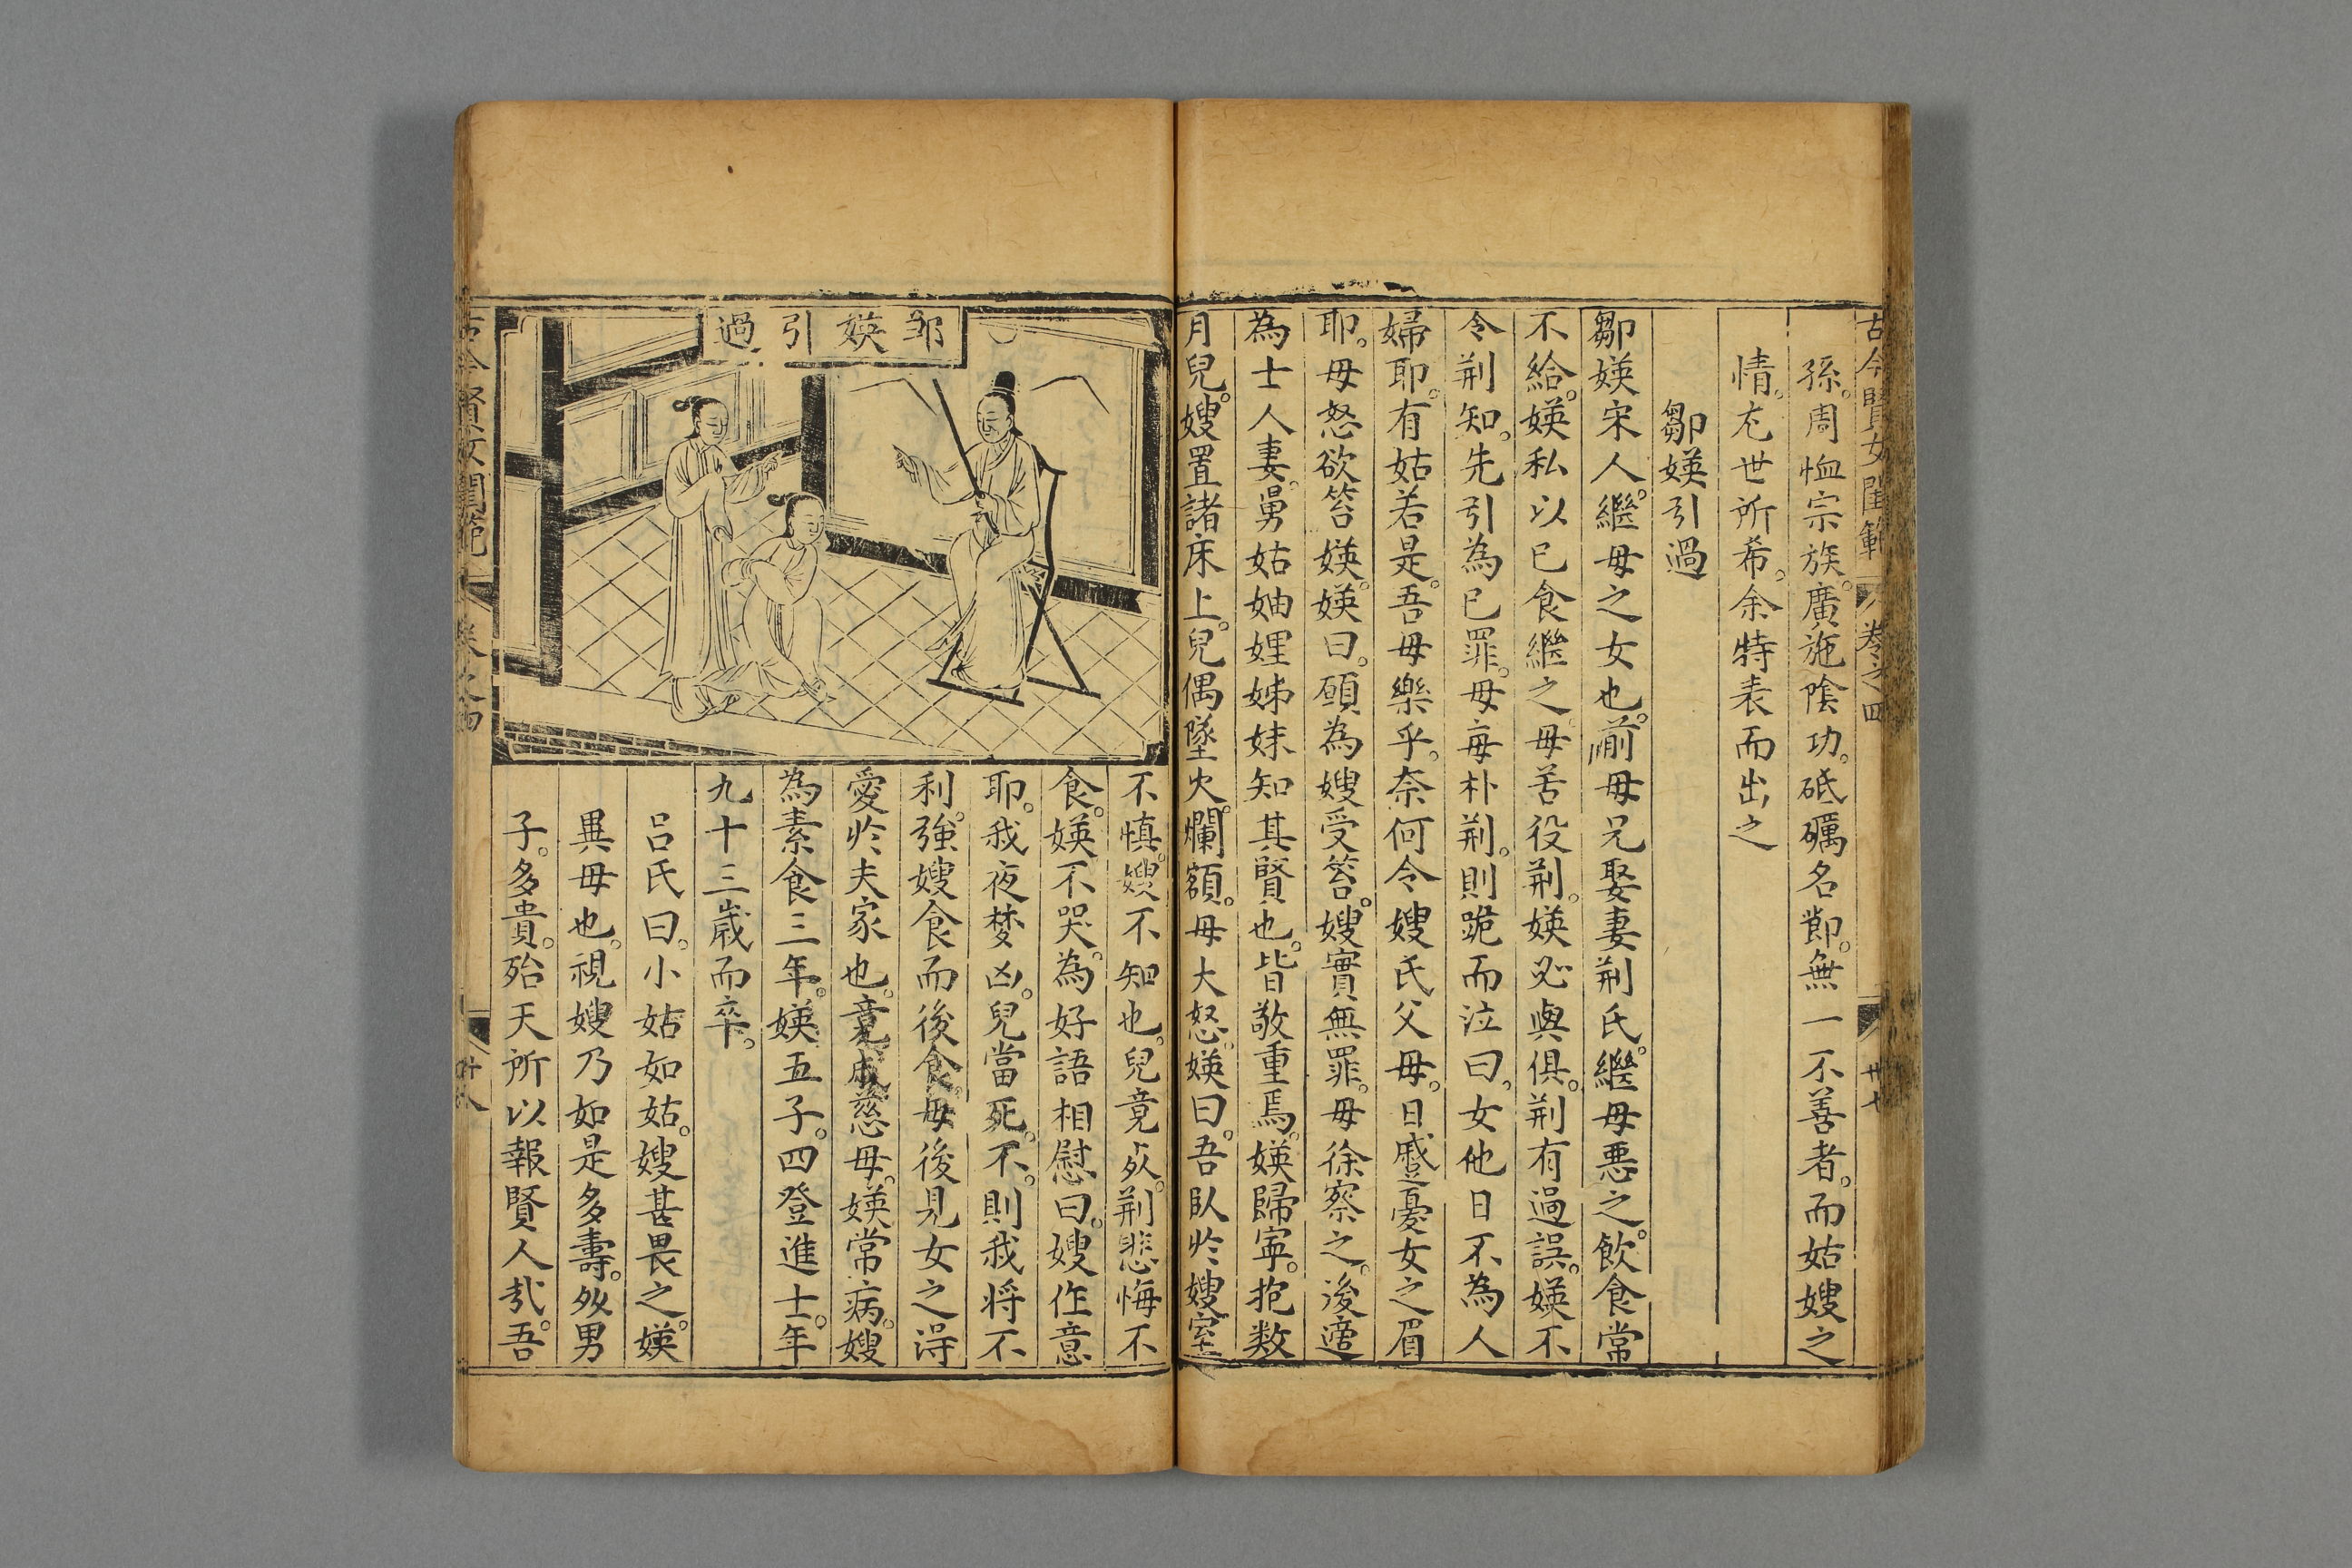 古今賢女閨範 卷之四 卅七
孫。周恤宗族。廣施陰功。砥礪名節。無一不善者。而姑嫂之
情。尤世所希。余特表而出之
鄒媖引過
鄒媖宋人。繼母之女也。前母兄娶妻荊氏。繼母惡之。飲食常
不給。媖私以已食繼之。母苦役荊。媖必與俱。荊有過誤。媖不
令荊知。先引為已罪。母每朴荊。則跪而泣曰。女他日不為人
婦耶。有姑若是。吾母樂乎。奈何令嫂氏父母。日蹙憂女之眉
耶。母怒欲笞媖。媖曰。願為嫂受笞。嫂實無罪。母徐察之。後適
為士人妻。舅姑妯娌姊妹知其賢也。皆敬重焉。媖歸寧。抱数
月兒。嫂置諸床上。兒偶墜火。爛額。母大怒。媖曰。吾臥於嫂室
鄒媖引過
不慎。嫂不知也。兒竟歿。荊悲悔不
食。媖不哭。為好語相慰曰。嫂作意
耶。我夜梦凶。兒當死。不。則我将不
利。強嫂食而後食。母後見女之淂
愛於夫家也。竟成慈母。媖常病。嫂
為素食三年。媖五子。四登進士。年
九十三歲而卒。
呂氏曰。小姑如姑。嫂甚畏之。媖。
異母也。視嫂乃如是。多壽。多男
子。多貴。殆天所以報賢人㦲。吾
古今賢女閨範 卷之四 卅八